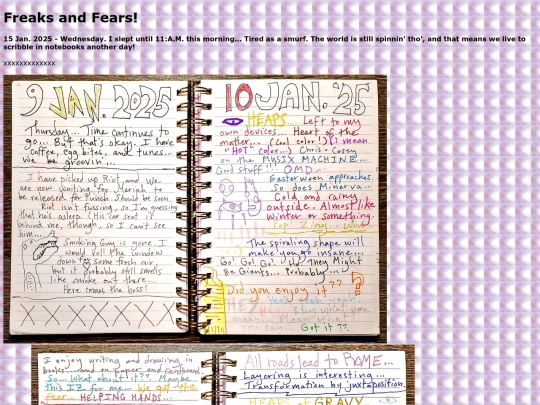 Freaks and Fears!
15 Jan. 2025 - Wednesday. I slept until 11:A.M. this morning... Tired as a smurf. The world is still spinnin' tho', and that means we live to
scribble in notebooks another day!
xxxxxxxxxxxxx
9 JAN. 2025
Thursday... Time continues to
go... But that's okay. I have
coffee, egg bites, and tunes...
We be groovin...
I have picked up Riot, and We
are now waiting for Mariah to
be released for lunch. Should be soon.
Riot isn't fussing, so I'm guessing
that he's asleep. (His car seat is
behind me, though, so I can't see
him...
Smoking Guy is gone. I
would roll the window
down for some fresh air,
but it probably still smells
like smoke out there...
Here comes the boss!
XXXXXXXX
10 JAN. '25
HEAPS... Left to my
own devices... Heart of the
matter... (Cool color!) (I mean
"HOT" color...) Chris & Cosey
on the MUSIX MACHINE...
Good stuff!... OMD...
Easterween approaches.
So does Minerva...
Cold and rainy
outside. Almost like
winter or something.
Yep! Zing...
The spiraling shape will
make you go insane...
Go! Go! Go! He They Might
Be Giants... Probably...
Did you enjoy it??
HEY Yeah yeah yeah...
you mean... Mean what
you say... Got it??
I enjoy writing and drawing in
books... and on paper and cardboard.
So... What about it?? Maybe
this IZ for me... We got the
fear... HELPING HANDS...
All roads lead to ROME...
Layering is interesting...
Transformation by juxtaposition.
HEAPS of GRAVY